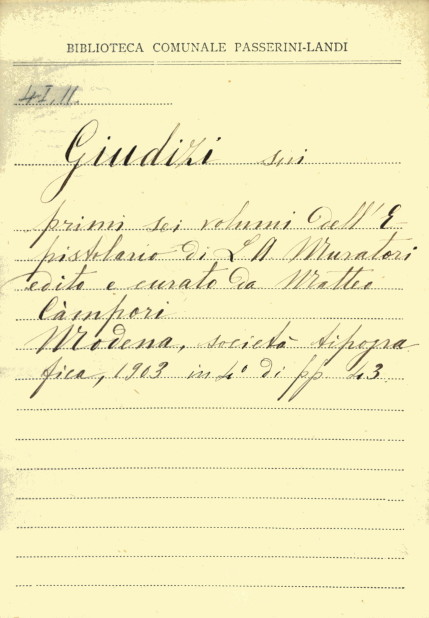 BIBLIOTECA COMUNALE PASSERINI-LANDI
4I.II.
Giudizi sui
primi sei volumi dell'E
pistolario di L A Muratori
edito e curato da Matteo
Càmpori
Modena, società tipogra
fica, 1903 in 4° di pp 43